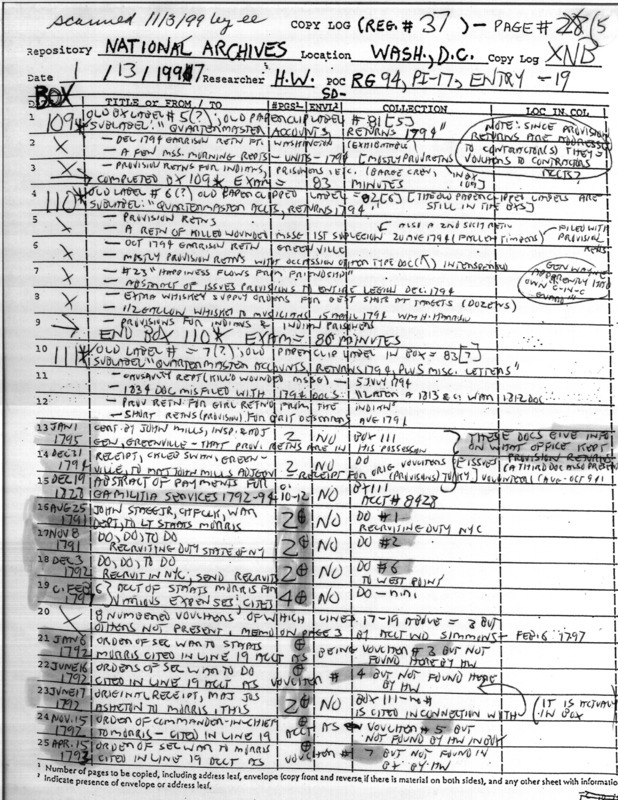 scanned 11/3/99 by ee COPY LOG (REG # 37) - PAGE # 28 (5
Repository NATIONAL ARCHIVES Location WASH., D.C. Copy Log XNB
Date 1 / 13 / 1997 Researcher H.W. POC RG 94, PI-17, ENTRY - 19
BOX SD-
TITLE OF FROM / TO #PGS¹ ENVL² COLLECTION LOC IN COL
1 109* OLD BOX LABEL # 5(?), OLD PAPERCLIP LABEL # 81 [5]
SUBLABEL: "QUARTERMASTER ACCOUNTS, RETURNS 1794"
NOTE: SINCE PROVISION RETURNS ARE ADDRESSED TO CONTRACTOR(S) THEY = VOUCHERS TO CONTRACTORS ACCTS?
2 X - DEC 1794 GARRISON RETN FT. WASHINGTON (EXHIBITABLE)
- A FEW MISS. MORNING REPTS - UNITS - 1794 [MOSTLY PROV RETNS
3 X - PROVISION RETNS FOR INDIANS, PRISONERS, ETC. (BARGE CREW, IN BOX 109)
COMPLETED BX 109* EXAM = 83 MINUTES
4 110* OLD LABEL # 6(?) OLD PAPERCLIPPED LABEL = 82 [6] [THE OLD PAPERCLIPPED LABELS ARE
SUBLABEL: "QUARTERMASTER ACCTS, RETURNS, 1794" STILL IN THE BXS)
5 X - PROVISION RETNS ALSO A 2ND SICK RETN
- A RETN OF KILLED WOUNDED MSSG 1ST SUBLEGION 20 AUG 1794 (FALLEN TIMBERS) FILED WITH PROVISION RETNS
6 X - OCT 1794 GARRISON RETN GREENVILLE
- MOSTLY PROVISION RETNS WITH OCCASION OTHER TYPE DOC(X) INTERSPERSED
7 X - #23 "HAPPINESS FLOWS FROM FRIENDSHIP"
- ABSTRACT OF ISSUES PROVISIONS TO ENTIRE LEGION DEC. 1794
GEN WAYNE APPARENTLY HAD OWN C-IN-C GUARD"
8 X - EXTRA WHISKEY SUPPLY ORDERS FOR BEST SHOTS AT TARGETS (DOZENS)
- 1/2 GALLON WHISKEY TO MUSICIANS 15 MAR 1794 WM H. HARRISON
9 - PROVISIONS FOR INDIANS & INDIAN PRISONERS
END BOX 110* EXAM = 86 MINUTES
10 111* OLD LABEL # = 7(?), OLD PAPERCLIP LABEL IN BOX = 83[?]
SUBLABEL "QUARTERMASTER ACCOUNTS, RETURNS 1794, PLUS MISC. LETTERS"
11 - CASUALTY REPT (KILLD WOUNDED MSSG) - 5 JULY 1794
- 1834 DOC MISFILED WITH 1794 DOCS 1812 DOC
12 X - PROV RETN FOR GIRL RETND FROM THE INDIANS
- SHORT RETNS (PROVISION) FOR AUG 1791
13 JAN 1 1795 CERT. BY JOHN MILLS, INSP. & ADJ 2 NO BOX 111
GEN, GREENVILLE - THAT PROV. RETNS ARE IN HIS POSSESSION
THESE DOCS GIVE INFO ON WHAT OFFICE KEPT PROVISION RETURNS (A THIRD DOC ALSO PRESENT
14 DEC 31 1794 RECEIPT, CALEB SWAN, GREEN- 2 NO DO
VILLE, TO MAJ JOHN MILLS ADJ GEN - RECEIPT FOR ORIG. VOUCHERS (PROVISIONS)
15 DEC 19 ABSTRACT OF PAYMENTS FOR 10-12 NO BX 111
GA MILITIA SERVICES 1792-94 ACCT # 8428
16 AUG 25 1791 JOHN STAGG JR, CH CLK, WAR 2⊕ NO DO # 1 -
DEPT, TO LT STAATS MORRIS RECRUITING DUTY NYC
17 NOV 8 1791 DO, DO, TO DO 2⊕ NO DO #2
RECRUITING DUTY STATE OF NY
18 DEC 3 1792 DO, DO, TO DO 2⊕ NO DO #6
RECRUIT IN NYC, SEND RECRUITS TO WEST POINT
19 C. FEB 6 1797 ACCT OF STAATS MORRIS FOR 4⊕ NO DO -
VARIOUS EXPENSES, CITES
20 X 8 NUMBERED VOUCHERS OF WHICH LINES 17-19 ABOVE = 3 BUT
OTHERS NOT PRESENT, MEMO ON PAGE 3 BY ACCT WD SIMMONS - FEB 6 1797
21 JAN 6 1792 ORDER OF SEC WAR TO STAATS ⊕ BEING VOUCHER # 3 BUT NOT
MORRIS CITED IN LINE 19 ACCT AS FOUND HERE BY HW
22 JUNE 16 1792 ORDERS OF SEC WAR TO DO ⊕
CITED IN LINE 19 ACCT AS VOUCHER # 4 BUT NOT FOUND HERE BY HW
23 JUNE 17 1792 ORIGINAL RECEIPT, MAJ JOS 2⊕ NO BOX 111 - no #
ASHETON TO MORRIS, THIS IS CITED IN CONNECTION WITH (IT IS ACTUALLY IN BOX
24 NOV. 15 1792 ORDER OF COMMANDER-IN-CHIEF ⊕
TO MORRIS - CITED IN LINE 19 ACCT AS VOUCHER # 5 BUT NOT FOUND BY HW IN BOX
25 APR. 15 1793 ORDER OF SEC WAR TO MORRIS ⊕
CITED IN LINE 19 ACCT AS VOUCHER # 7 BUT NOT FOUND IN BX BY HW
¹ Number of pages to be copied, including address leaf, envelope (copy front and reverse if there is material on both sides), and any other sheet with informatio
² Indicate presence of envelope or address leaf.